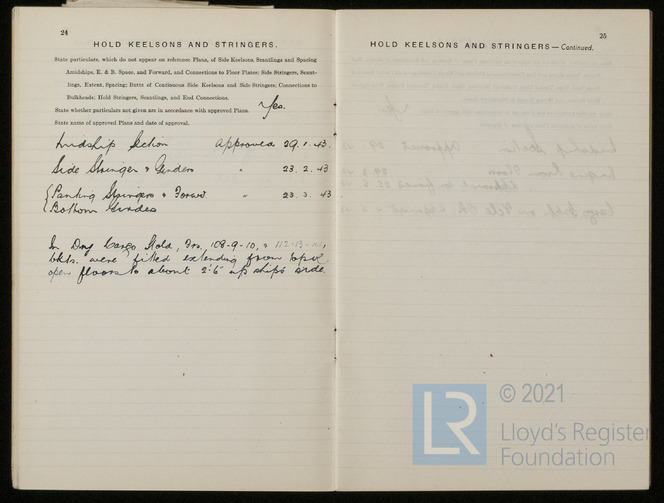 24
HOLD KEELSONS AND STRINGERS.
State particulars, which do not appear on reference Plans, of Side Keelsons, Scantlings and Spacing
Amidships, E. & B. Space, and Forward, and Connections to Floor Plates; Side Stringers, Scant-
lings, Extent, Spacing; Butts of Continuous Side Keelsons and Side Stringers; Connections to
Bulkheads; Hold Stringers, Scantlings, and End Connections.
State whether particulars not given are in accordance with approved Plans. Yes.
State name of approved Plans and date of approval.
Midship Section approved 29.1.43.
Side Stringer & Girders " 23.2.43
Panting Stringers & Forward " 23.3.43
Bottom Girders
In Dry Cargo Hold, Frs. 108-9-10, & 112-13-
bkts. were fitted extending from top of
open floors to about 2'6" up ship's side.
25
HOLD KEELSONS AND STRINGERS—Continued.
LR
© 2021
Lloyd's Register
Foundation